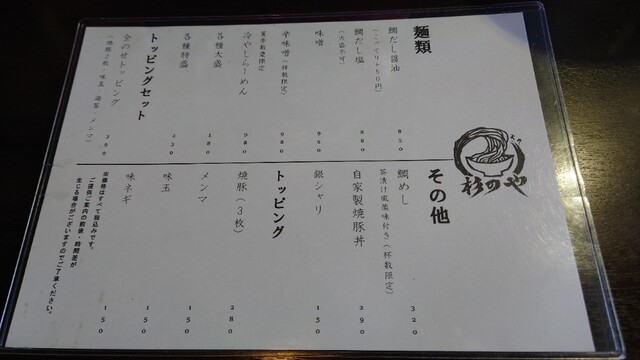 麺類
鯛だし醤油 850
(こってり+50円)
鯛だし塩 880
(大盛不可)
味噌 950
辛味噌(杯数限定) 980
冷やしらーめん 980
夏季数量限定
各種大盛 180
各種特盛 230
トッピングセット
全のせトッピング
(焼豚2枚・味玉・海苔・メンマ)
杉のや
その他
鯛めし 320
茶漬け風薬味付き(杯数限定)
自家製焼豚丼 290
銀シャリ 150
トッピング
焼豚(3枚) 280
メンマ 150
味玉 150
味ネギ 150
※価格はすべて税込みです。
ご提供ご案内の前後・時間差が
生じる場合がございますのでご了承ください。